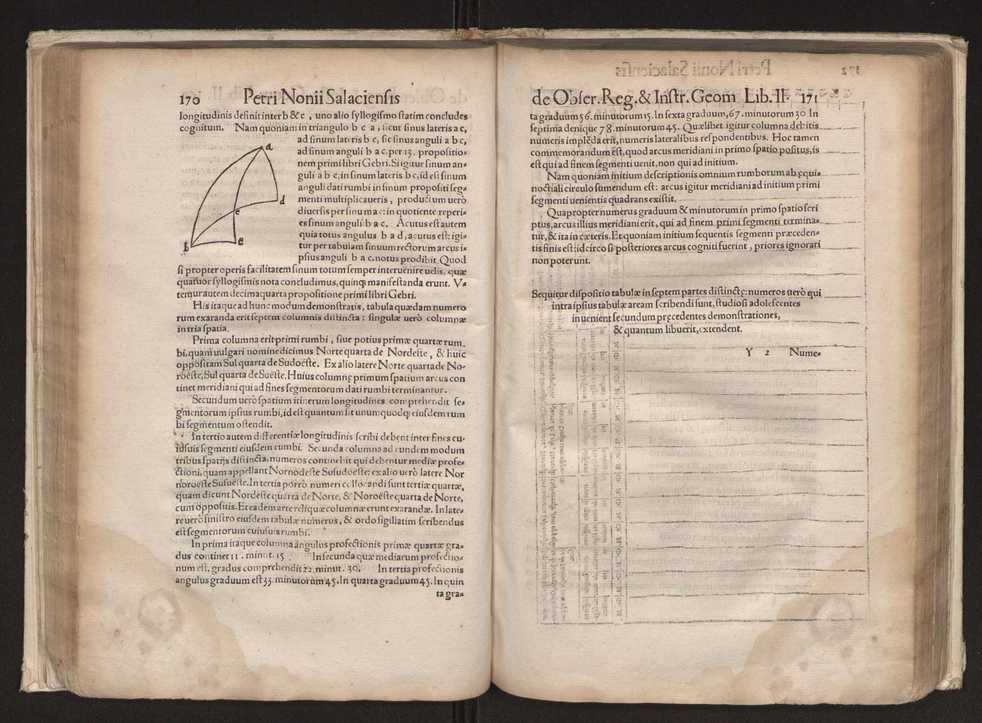 170 Petri Nonii Salaciensis
longitudinis definit inter b & e, uno alio syllogismo statim concludes
cognitum. Nam quoniam in triangulo b c a, sicut sinus lateris a c,
ad sinum lateris b c, sic sinus anguli a b c,
ad sinum anguli b a c, per 13. propositio-
nem primi libri Gebri. Si igitur sinum an-
guli a b c, in sinum lateris b c, id est sinum
anguli dati rumbi in sinum propositi seg-
menti multiplicaueris, productum uerò
diuersis per sinum a c: in quotiente reperi-
es sinum anguli b a c. Acutus est autem
quia totus angulus b a d, acutus est: igi-
tur per tabulam sinuum rectorum arcus i-
psius anguli b a c, notus prodibit. Quod
si propter operis facilitatem sinum totum semper interuenire uelis, quæ
quatuor syllogismis nota concludimus, quinq; manifestanda erunt. V-
temur autem decimaquarta propositione primi libri Gebri.
His itaque ad hunc modum demonstratis, tabula quædam numero
rum exaranda erit septem columnis distincta: singulæ uerò columnæ
in tria spatia.
Prima columna erit primi rumbi, siue potius primæ quartæ rum
bi, quam uulgari nomine dicimus Norte quarta de Nordeste, & huic
oppositam Sul quarta de Sudoeste. Ex alio latere Norte quarta de No-
roeste, Sul quarta de Sueste. Huius columnę primum spatium arcus con
tinet meridiani qui ad fines segmentorum dati rumbi terminantur.
Secundum uerò spatium itinerum longitudines comprehendit se-
gmentorum ipsius rumbi, id est quantum sit unumquodq; eiusdem rum
bi segmentum ostendit.
In tertio autem differentiæ longitudinis scribi debent inter fines cu-
iusuis segmenti eiusdem rumbi. Secunda columna ad eundem modum
tribus spatijs distincta, numeros continebit qui debentur mediæ profe-
ctioni, quam appellant Nornodeste Susudoeste: ex alio uerò latere Nor
noroeste Susueste. In tertia porrò numeri collocandi sunt tertiæ quartæ,
quam dicunt Nordeste quarta de Norte, & Noroeste quarta de Norte,
cum oppositis. Et eadem arte reliquæ columnæ erunt exarandæ. In late-
re uerò sinistro eiusdem tabulæ numerus, & ordo sigillatim scribendus
est segmentorum cuiusuis rumbi.
In prima itaque columna angulus profectionis primæ quartæ gra-
dus continet 11. minut. 15. In secunda quæ mediarum profectio-
num est, gradus comprehendit 22. minut. 30. In tertia profectionis
angulus graduum est 33. minutorum 45. In quarta graduum 45. In quin
ta gra-
de Obser. Reg. & Instr. Geom Lib. II. 171
ta graduum 56. minutorum 15. In sexta graduum, 67. minutorum 30 In
septima denique 78. minutorum 45. Quælibet igitur columna debitis
numeris implēda erit, numeris lateralibus respondentibus. Hoc tamen
commemorandum est, quod arcus meridiani in primo spatio positus, is
est qui ad finem segmenti uenit, non qui ad initium.
Nam quoniam initium descriptionis omnium rumborum ab ęqui-
noctiali circulo sumendum est: arcus igitur meridiani ad initium primi
segmenti uenientis quadrans existit.
Quapropter numerus graduum & minutorum in primo spatio scri
ptus, arcus illius meridiani erit, qui ad finem primi segmenti termina-
tur, & ita in cæteris. Et quoniam initium sequentis segmenti præceden-
tis finis est: idcirco si posteriores arcus cogniti fuerint, priores ignorari
non poterunt.
Sequitur dispositio tabulæ in septem partes distinctę: numeros uerò qui
intra ipsius tabulæ aream scribendi sunt, studiosi adolescentes
inuenient secundum pręcedentes demonstrationes,
& quantum libuerit, extendent.
Y 2 Nume-